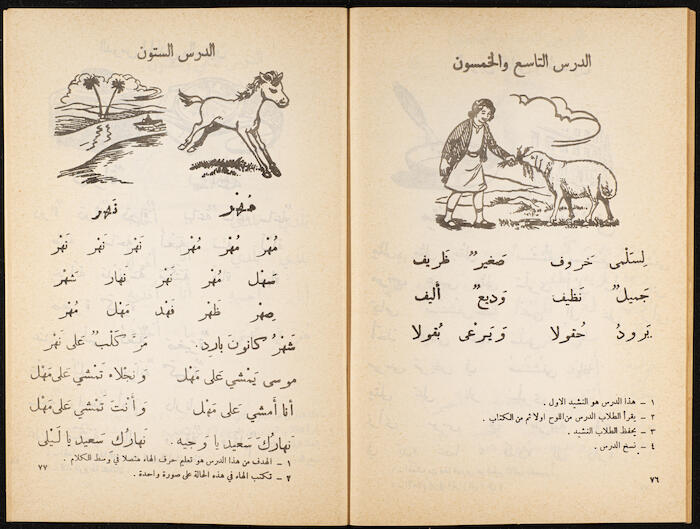 الدرس التاسع والخمسون
لِسَلْمى خَروف صَغيرٌ ظَريف
جَميلٌ نَظيف وَديعٌ أَليف
يَرودُ حُقولا وَيَرْعى بُقولا
١ - هذا الدرس هو النشيد الاول .
٢ - يقرأ الطلاب الدرس من اللوح اولا ثم من الكتاب .
٣ - يحفظ الطلاب النشيد .
٤ - نسخ الدرس .
٧٦
الدرس الستون
مُهْر نَهر
مُهْر مُهْر مُهْر نَهْر نَهْر نَهْر
صَهْل مُهْر نَهْر نَهار شَهْر
صِهْر ظَهْر فَهْد مَهْل مُهْر
شَهْرُ كانونَ بارد . مَرَّ كَلْبٌ عَلى نَهْر
موسى يَمْشي عَلى مَهْل وَنجلاء تَمْشي عَلى مَهْل
أنا أمْشي عَلى مَهْل وَأنْتَ تَمْشي عَلى مَهْل
نَهارُكَ سَعيد يا وَجيه . نَهارُكِ سَعيد يا لَيْلى
١ - الهدف من هذا الدرس هو تعليم حرف الهاء متصلا في وسط الكلام .
٢ - تكتب الهاء في هذه الحالة على صورة واحدة .
٧٧